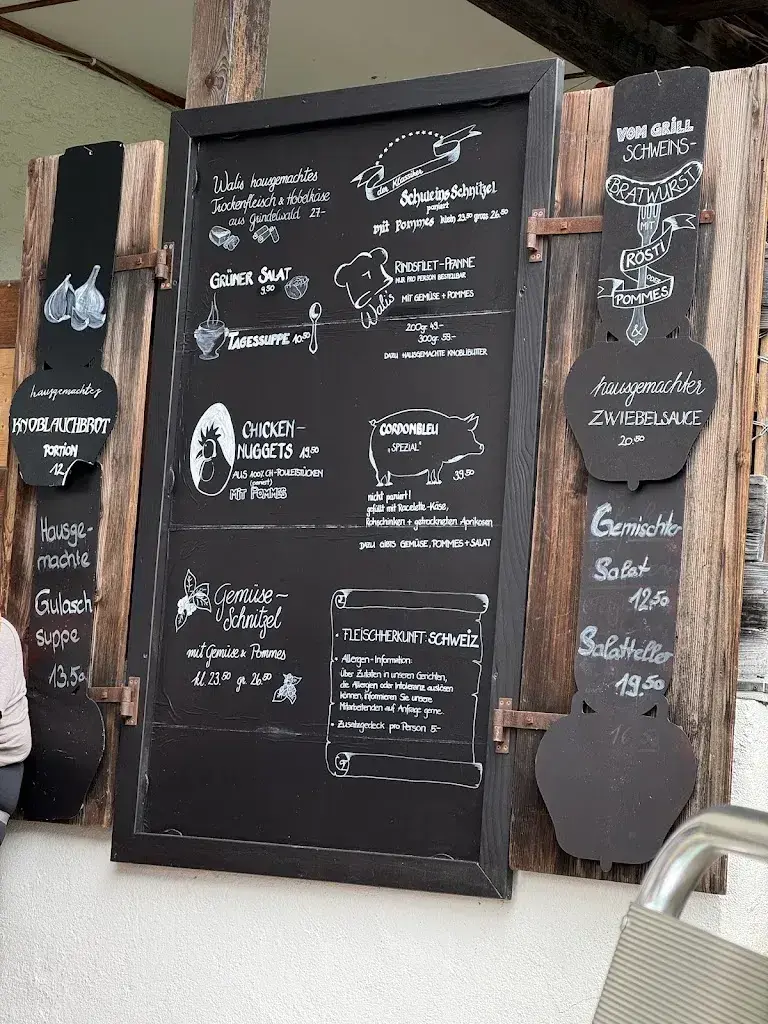 hausgemachtes
KNOBLAUCHBROT
PORTION
12
Hausge-
machte
Gulasch
suppe
13.50
Walis hausgemachtes
Trockenfleisch & Hobelkäse
aus Grindelwald 27-
GRÜNER SALAT
9.50
TAGESSUPPE 10.50
CHICKEN-
NUGGETS 19.50
AUS 100% CH-POULETSTÜCKEN
(paniert)
MIT POMMES
Gemüse-
Schnitzel
mit Gemüse & Pommes
kl. 23.50 gr. 26.50
der Klassiker
Schweins Schnitzel
paniert
mit Pommes klein 23.50 gross 26.50
RINDSFILET-PFANNE
NUR PRO PERSON BESTELLBAR
Walis
MIT GEMÜSE + POMMES
200gr. 49.-
300gr. 59.-
DAZU HAUSGEMACHTE KNOBLIBUTTER
CORDONBLEU
"SPEZIAL"
39.50
nicht paniert!
gefüllt mit Raclette-Käse,
Rohschinken + getrockneten Aprikosen
DAZU GIBTS GEMÜSE, POMMES + SALAT
• FLEISCHHERKUNFT: SCHWEIZ
• Allergen-Information:
Über Zutaten in unseren Gerichten,
die Allergien oder Intoleranz auslösen
können, informieren Sie unsere
Mitarbeitenden auf Anfrage gerne.
• Zusatzgedeck pro Person 5.-
VOM GRILL
SCHWEINS-
BRATWURST
MIT
RÖSTI
ODER
POMMES
&
hausgemachter
ZWIEBELSAUCE
20.50
Gemischter
Salat
12,50
Salatteller
19.50